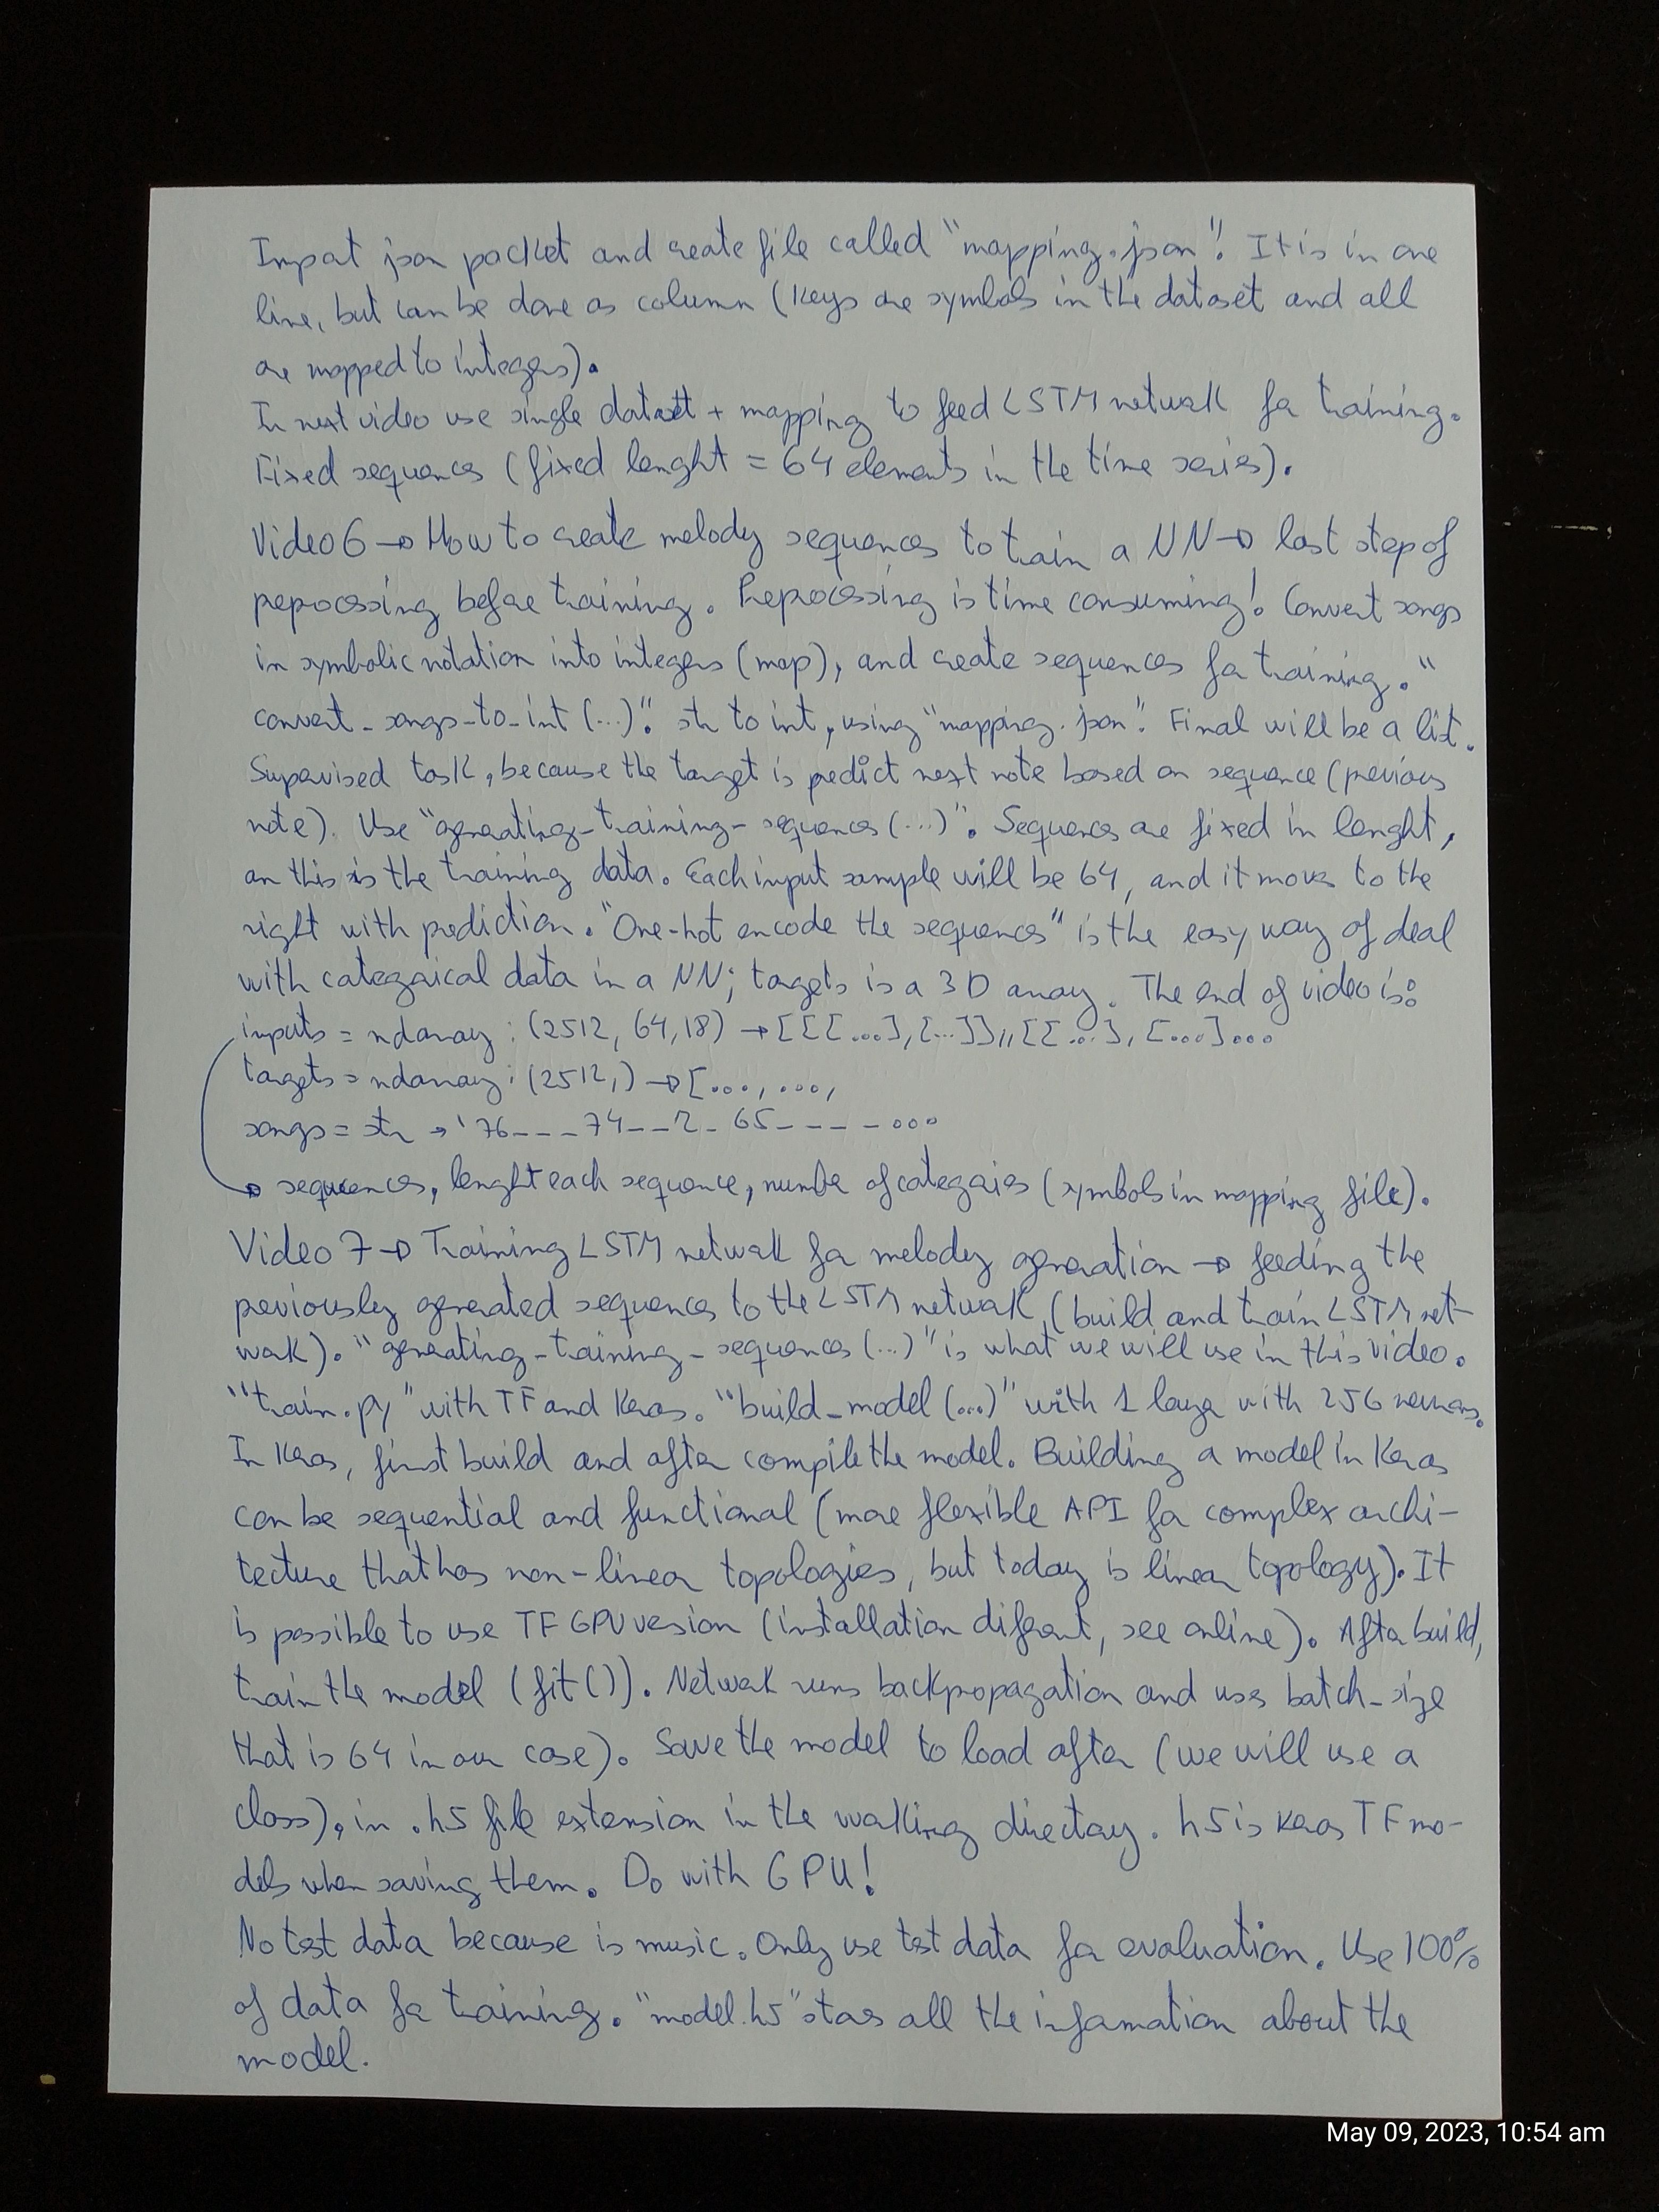 Import json packet and create file called "mapping.json". It is in one
line, but can be done as column (keys are symbols in the dataset and all
are mapped to integers).
In next video use single dataset + mapping to feed LSTM network for training.
Fixed sequences (fixed lenght = 64 elements in the time series).
Video 6 → How to create melody sequences to train a NN → last step of
preprocessing before training. Preprocessing is time consuming! Convert songs
in symbolic notation into integers (map), and create sequences for training. "
convert_songs_to_int (...)". str to int, using "mapping.json". Final will be a list.
Supervised task, because the target is predict next note based on sequence (previous
note). Use "generating_training_sequences (...)". Sequences are fixed in lenght,
on this is the training data. Each input sample will be 64, and it moves to the
right with prediction. "One-hot encode the sequences" is the easy way of deal
with categorical data in a NN; targets is a 3D array. The end of video is:
inputs = ndarray : (2512, 64, 18) → [[[...], [...]],, [[...], [...]...
targets = ndarray : (2512,) → [..., ...,
songs = str → '76___74__2_65____...
→ sequences, lenght each sequence, number of categories (symbols in mapping file).
Video 7 → Training LSTM network for melody generation → feeding the
previously generated sequences to the LSTM network (build and train LSTM net-
work). "generating_training_sequences (...)" is what we will use in this video.
"train.py" with TF and Keras. "build_model (...)" with 1 layer with 256 neurons.
In Keras, first build and after compile the model. Building a model in Keras
can be sequential and functional (more flexible API for complex archi-
tecture that has non-linear topologies, but today is linear topology). It
is possible to use TF GPU version (installation diferent, see online). After build,
train the model (fit()). Network runs backpropagation and uses batch_size
that is 64 in our case). Save the model to load after (we will use a
class), in .h5 file extension in the working directory. h5 is Keras TF mo-
dels when saving them. Do with GPU!
No test data because is music. Only use test data for evaluation. Use 100%
of data for training. "model.h5" stores all the information about the
model.
May 09, 2023, 10:54 am